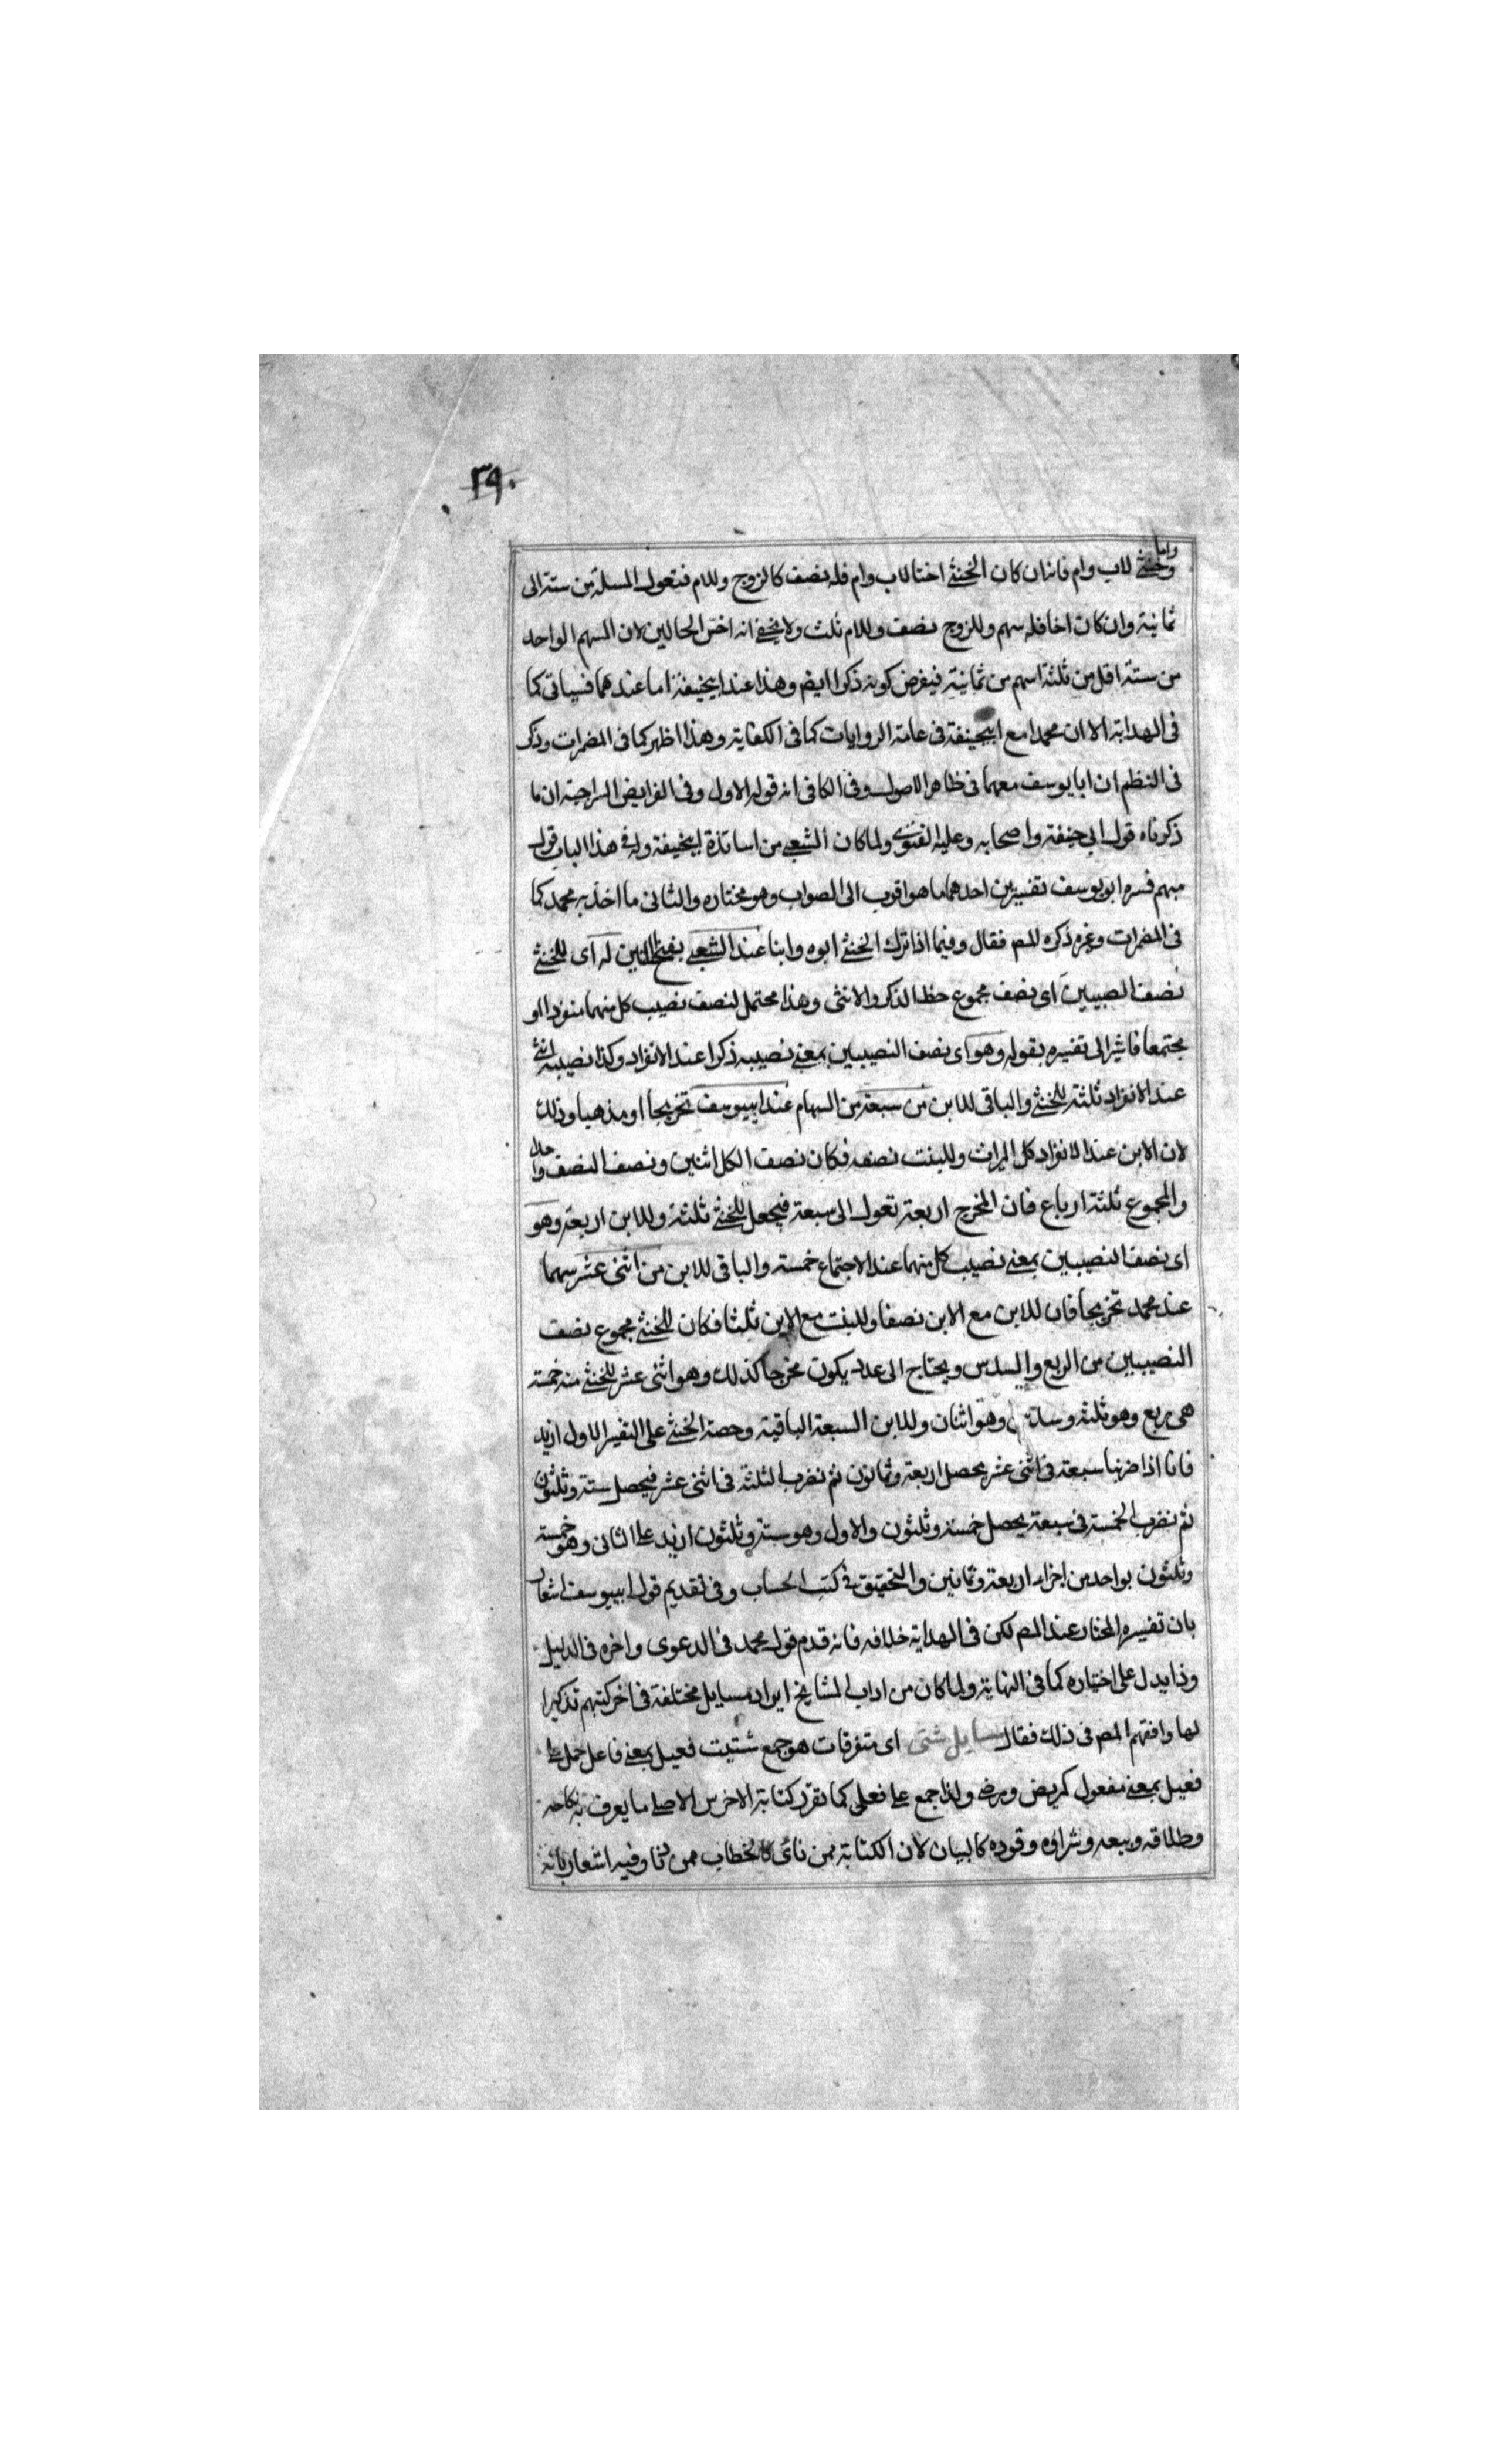 ٣٩٠
واما
وخنثى لاب وام فانه ان كان الخنثى اختا لاب وام فله نصف كالزوج وللام فتعول المسئلة من ستة الى
ثمانية وان كان اخا فله سهم وللزوج نصف وللام ثلث ولا يخفى انه اخس الحالين لان السهم الواحد
من ستة اقل من ثلثة اسهم من ثمانية فيفرض كونه ذكرا ايضا وهذا عند ابيحنيفة اما عندهما فسياتى كما
فى الهداية الا ان محمدا مع ابيحنيفة فى عامة الروايات كما فى الكفاية وهذا اظهر كما فى المضمرات وذكر
فى النظم ان ابا يوسف معهما فى ظاهر الاصول وفى الكافى انه قوله الاول وفى الفرايض السراجية ان ما
ذكرناه قول ابى حنيفة واصحابه وعليه الفتوى ولما كان الشعبى من اساتذة ابيحنيفة وله فى هذا الباب قول
مبهم فسره ابو يوسف تفسيرين احدهما ما هو اقرب الى الصواب وهو مختاره والثانى ما اخذ به محمد كما
فى المضمرات وغيره ذكره المص فقال وفيما اذا ترك الخنثى ابوه وابنا عند الشعبى بفتح الشين له اى للخنثى
نصف النصيبين اى نصف مجموع حظ الذكر والانثى وهذا محتمل لنصف نصيب كل منهما منفردا او
مجتمعا فاشير الى تفسيره بقوله وهو اى نصف النصيبين بمعنى نصيبه ذكرا عند الانفراد وكذا نصيبه انثى
عند الانفراد ثلثة للخنثى والباقى للابن من سبعة من السهام عند ابييوسف تخريجا او مذهبا وذلك
لان الابن عند الانفراد كل الميراث وللبنت نصفه فكان نصف الكل اثنين ونصف النصف واحدا
والمجموع ثلثة ارباع فان المخرج اربعة تعول الى سبعة فيجعل للخنثى ثلثة وللابن اربعة وهو
اى نصف النصيبين بمعنى نصيب كل منهما عند الاجتماع خمسة والباقى للابن من اثنى عشر سهما
عند محمد تخريجا فان للابن مع الابن نصفا وللبنت مع الابن ثلثا فكان للخنثى مجموع نصف
النصيبين من الربع والسدس ويحتاج الى عدد يكون مخرجا كذلك وهو اثنى عشر للخنثى منه خمسة
هى ربع وهو ثلثة وسدس وهو اثنان وللابن السبعة الباقية وحصة الخنثى على التفسير الاول ازيد
فانا اذا ضربنا سبعة فى اثنى عشر يحصل اربعة وثمانون ثم نضرب الثلثة فى اثنى عشر فيحصل ستة وثلثون
ثم نضرب الخمسة فى سبعة يحصل خمسة وثلثون والاول وهو ستة وثلثون ازيد على الثانى وهو خمسة
وثلثون بواحد من اجزاء اربعة وثمانين والتحقيق فى كتب الحساب وفى تقديم قول ابييوسف اشعار
بان تفسيره المختار عند المص لكن فى الهداية خلافه فانه قدم قول محمد فى الدعوى واخره فى الدليل
وذا يدل على اختياره كما فى النهاية ولما كان من اداب المشايخ ايراد مسايل مختلفة فى اخر كتبهم تذكيرا
لها وافقهم المص فى ذلك فقال مسايل شتى اى متفرقات هو جمع شتيت فعيل بمعنى فاعل حمل على
فعيل بمعنى مفعول كمريض ومرضى ولذا جمع على فعلى كما تقرر كتابة الاخرس الاصلى ما يعرف به نكاحه
وطلاقه وبيعه وشراؤه وقوده كالبيان لان الكتابة ممن نائ كالخطاب ممن دنا وفيه اشعار بانه